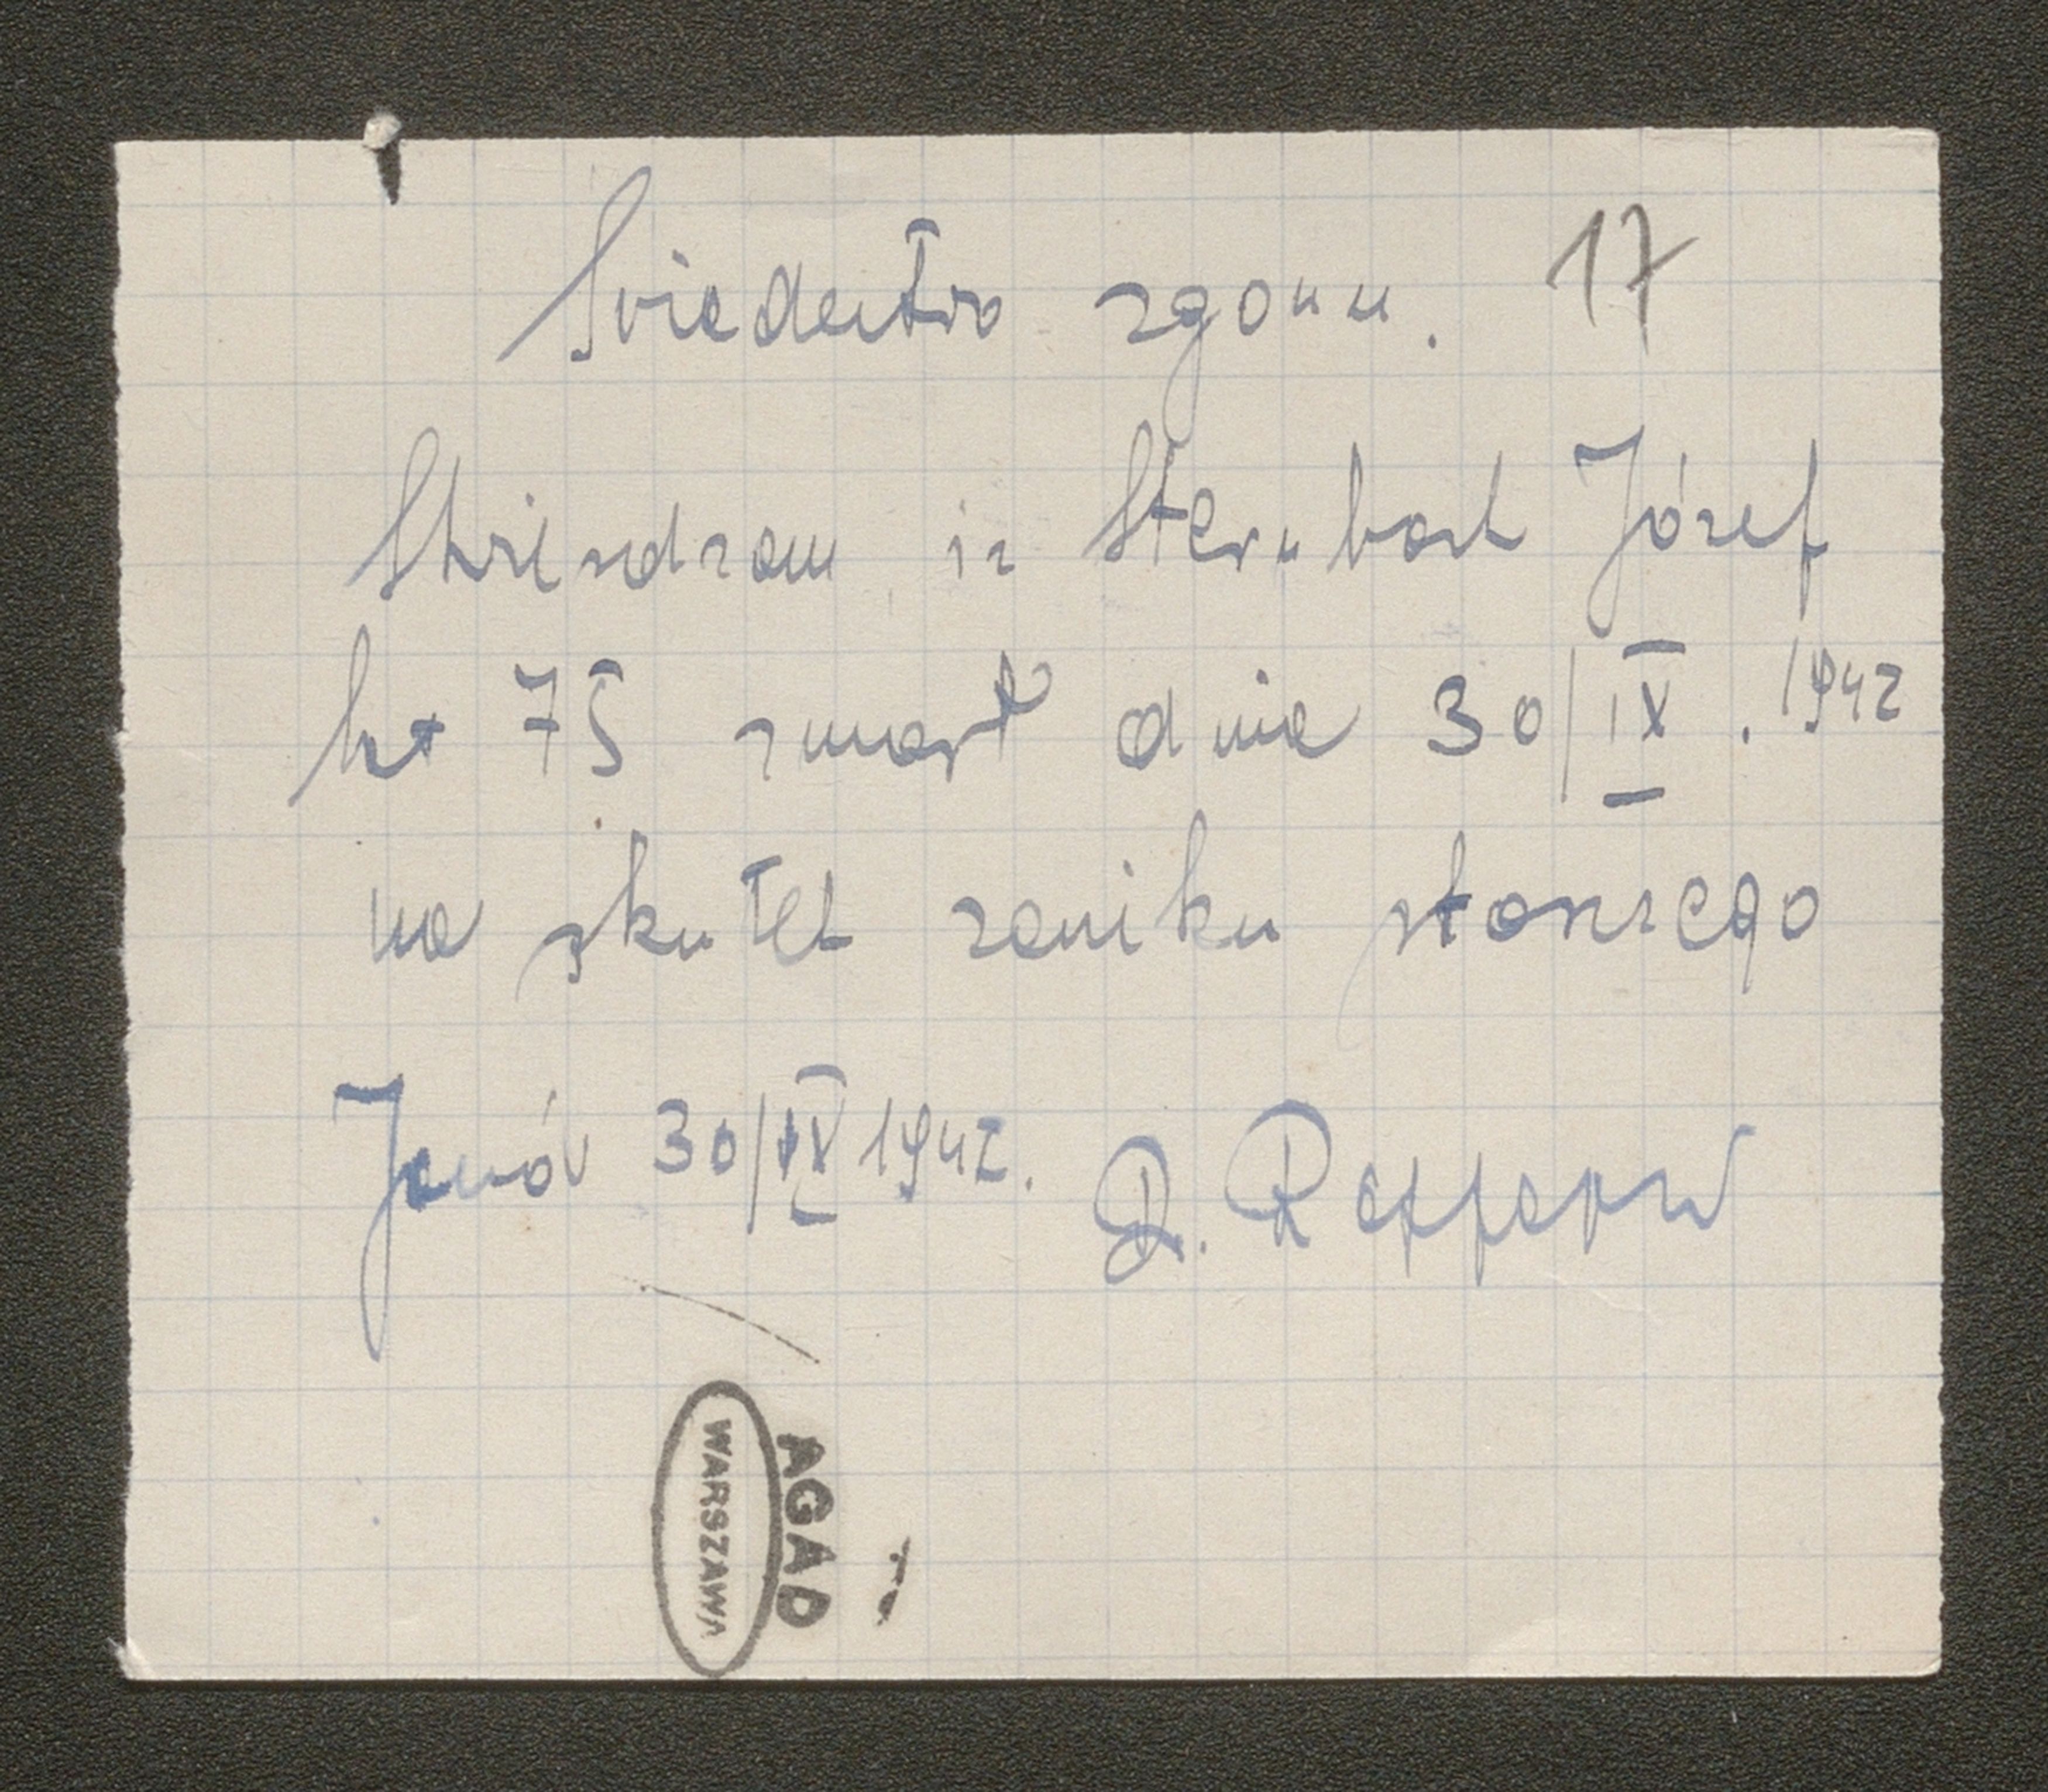 Świadectwo zgonu. 17
Stwierdzam iż Sternbach Józef
lat 75 zmarł dnia 30/IX. 1942
na skutek zaniku starczego
Janów 30/IX 1942. D.
AGAD
WARSZAWA